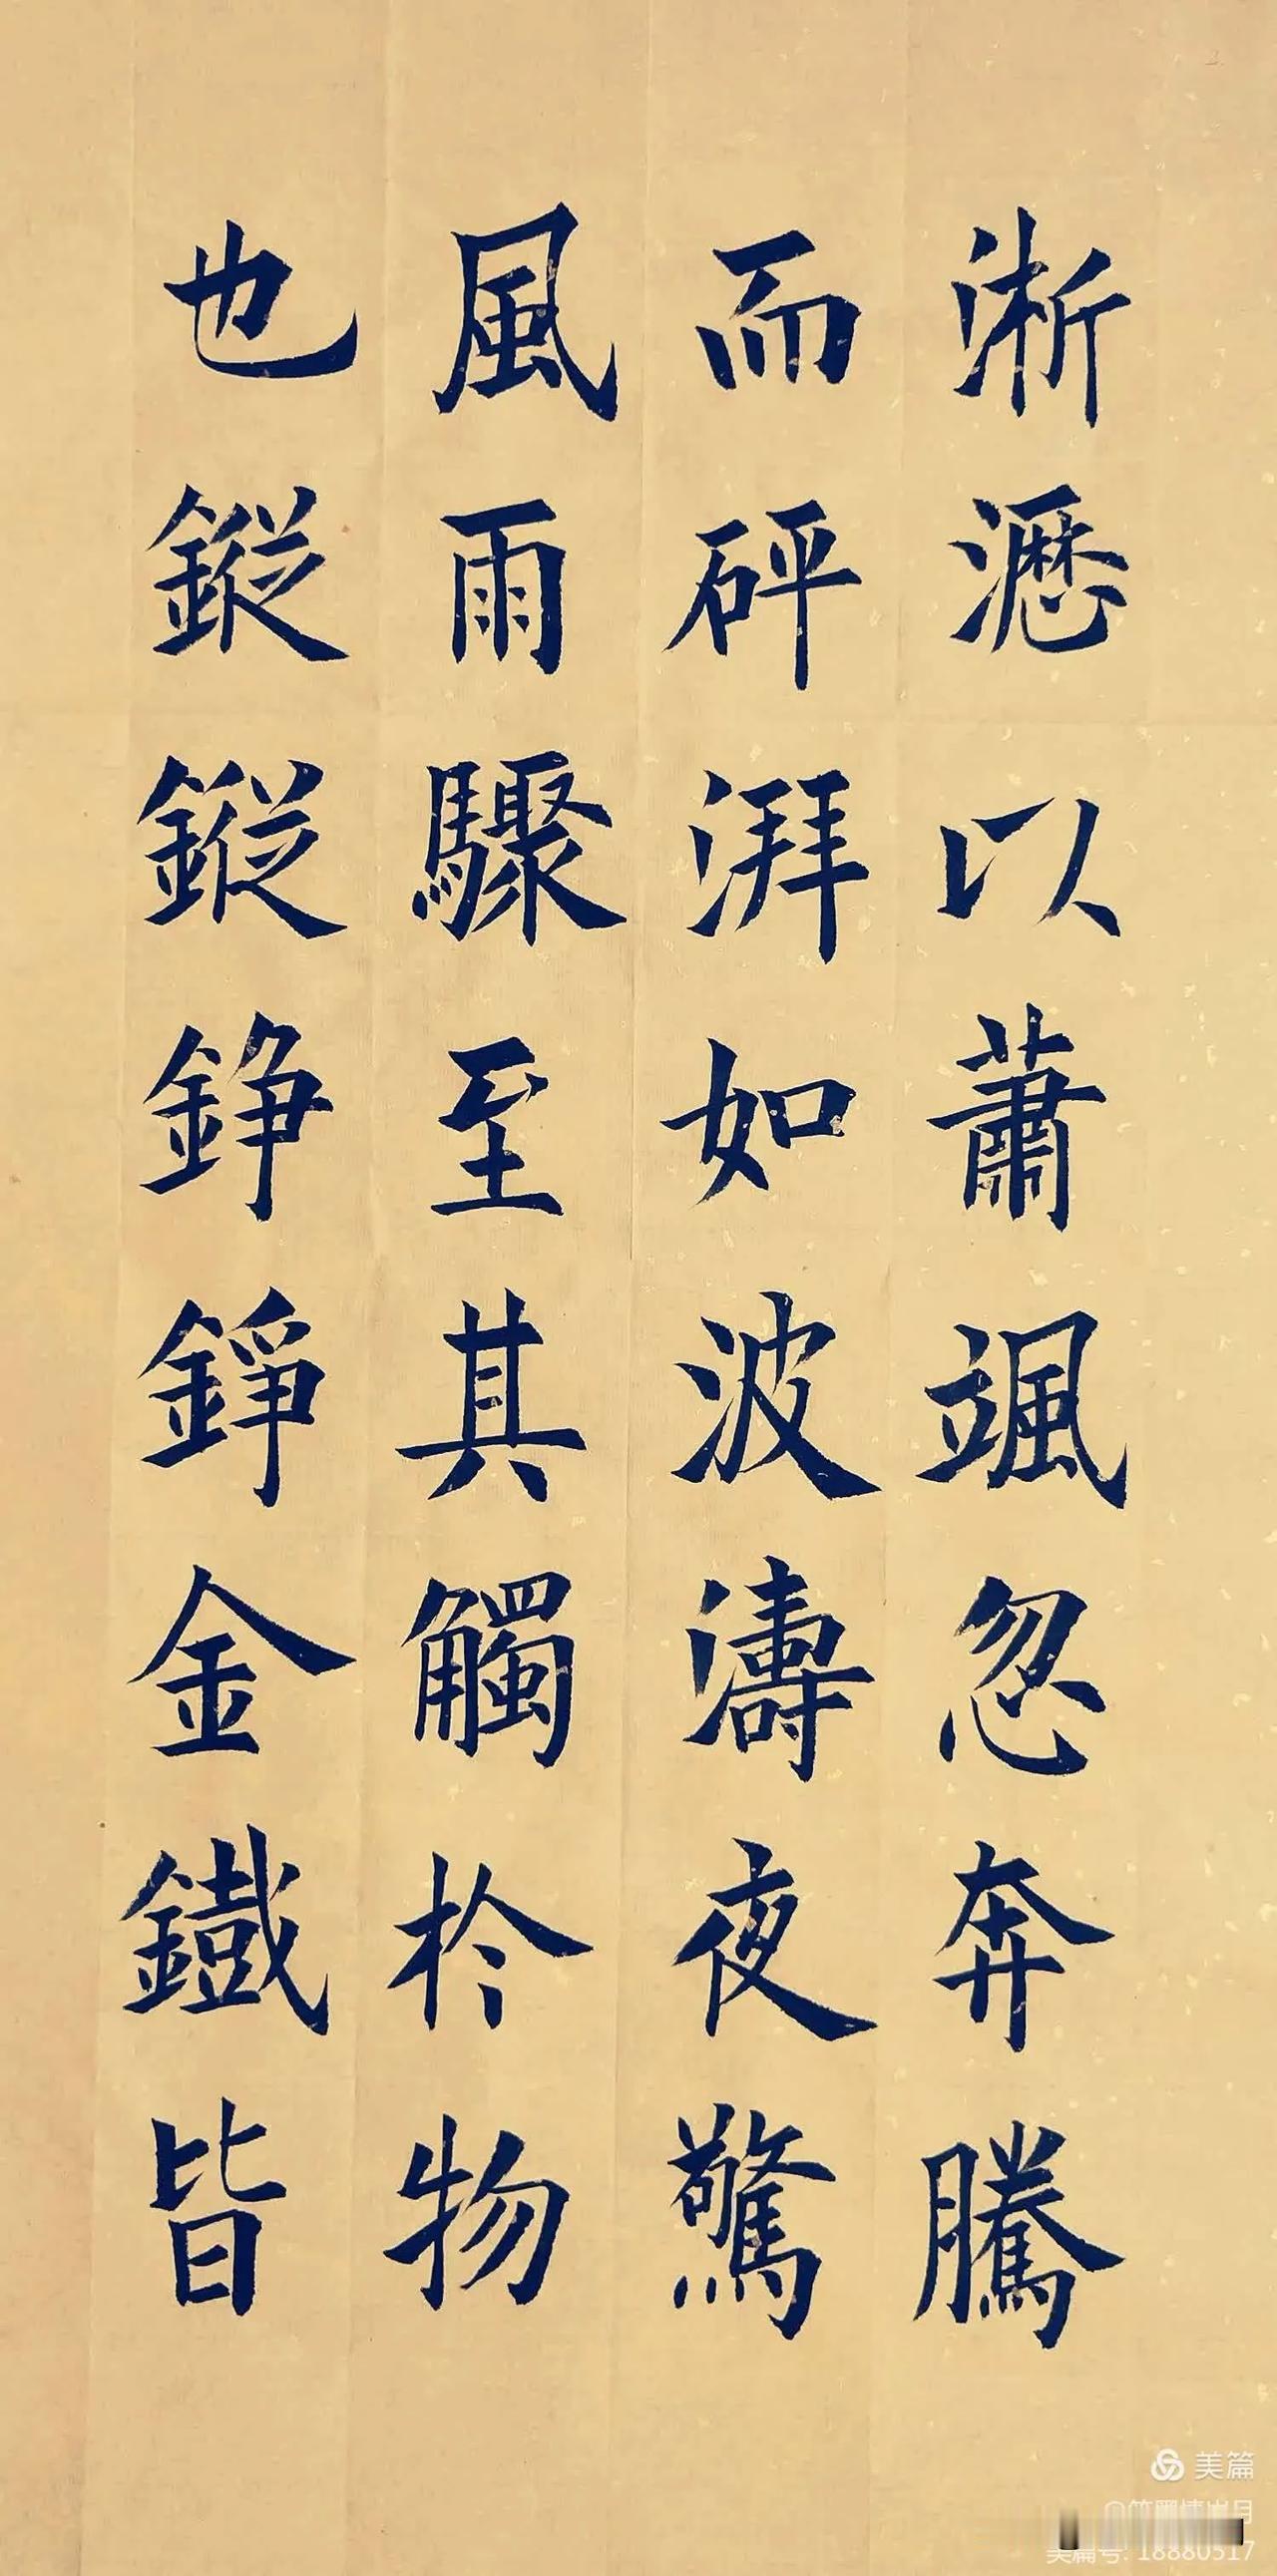 淅瀝以蕭颯忽奔騰
而砰湃如波濤夜驚
風雨驟至其觸於物
也鏦鏦錚錚金鐵皆
美篇
美篇号: 18880517